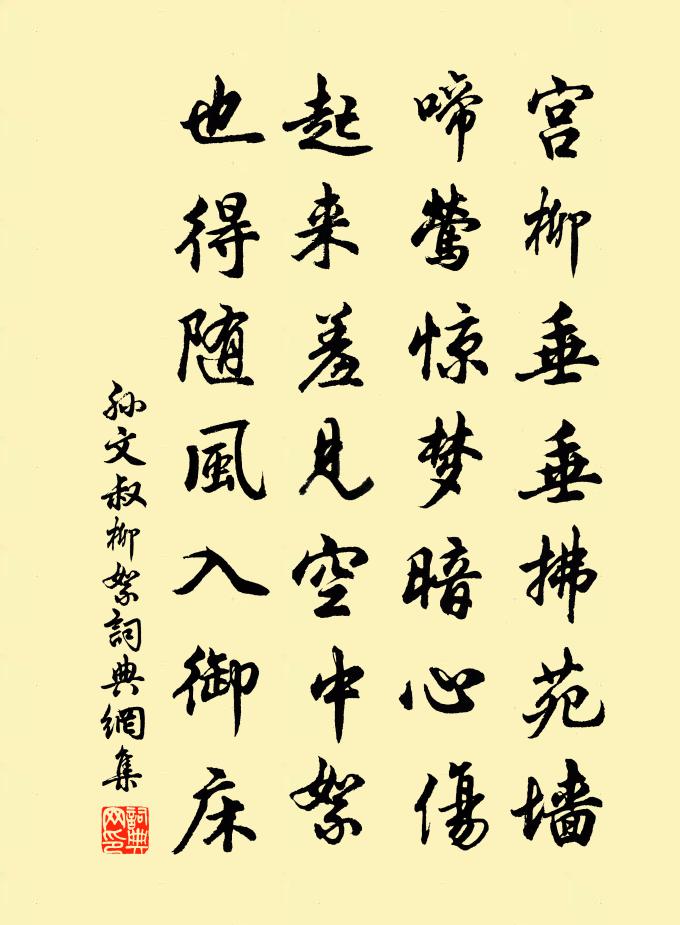 宫柳垂垂拂苑墙
啼莺惊梦暗心傷
起来羞见空中絮
也得随風入御床
孙文叔柳絮詞典網集
詞典网印